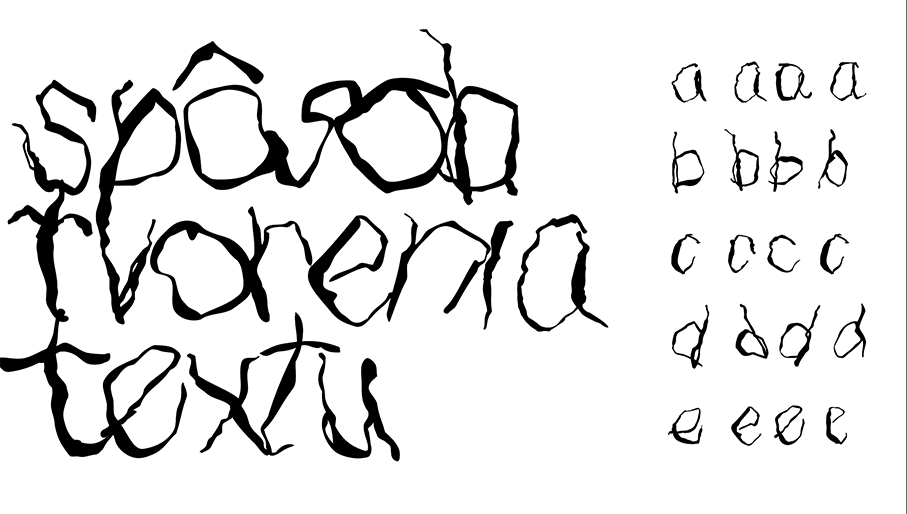 spôsob
tvorenia
textu
a a a a
b b b b
c c c c
d d d d
e e e e